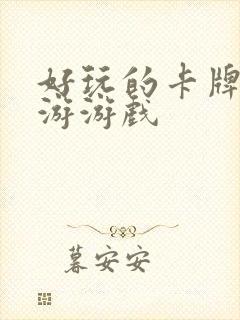 好玩的卡牌
游游戏
暮安安